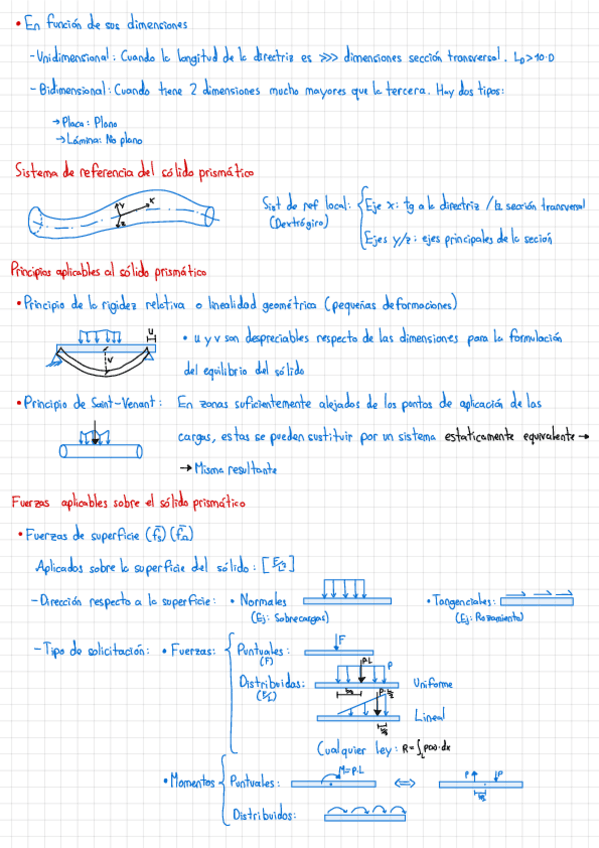 • En función de sus dimensiones
- Unidimensional: Cuando la longitud de la directriz es >>> dimensiones sección transversal. L_D>10·D
- Bidimensional: Cuando tiene 2 dimensiones mucho mayores que la tercera. Hay dos tipos:
→ Placa: Plano
→ Lámina: No plano
Sistema de referencia del sólido prismático
Sist de ref local: Eje x: tg a la directriz / ⊥ sección transversal
(Dextrógiro)
Ejes y/z: ejes principales de la seción
Y X
Z
Principios aplicables al sólido prismático
• Principio de la rigidez relativa o linealidad geométrica (pequeñas deformaciones)
u
v
• u y v son despreciables respecto de las dimensiones para la formulación
del equilibrio del sólido
• Principio de Saint-Venant: En zonas suficientemente alejados de los puntos de aplicación de las
cargas, estas se pueden sustituir por un sistema estaticamente equivalente →
→ Misma resultante
Fuerzas aplicables sobre el sólido prismático
• Fuerzas de superficie
Aplicados sobre la superficie del sólido: [F/L²]
- Dirección respecto a la superficie: • Normales • Tangenciales:
(Ej: Sobrecargas) (Ej: Rozamiento)
- Tipo de solicitación: • Fuerzas: Puntuales: F
(F)
P·L P
Distribuidas: Uniforme
(F/L)
Lineal
Cualquier ley: R=∫_L p(x)·dx
• Momentos Puntuales: M=P·L ⟺ P P
Distribuidos: